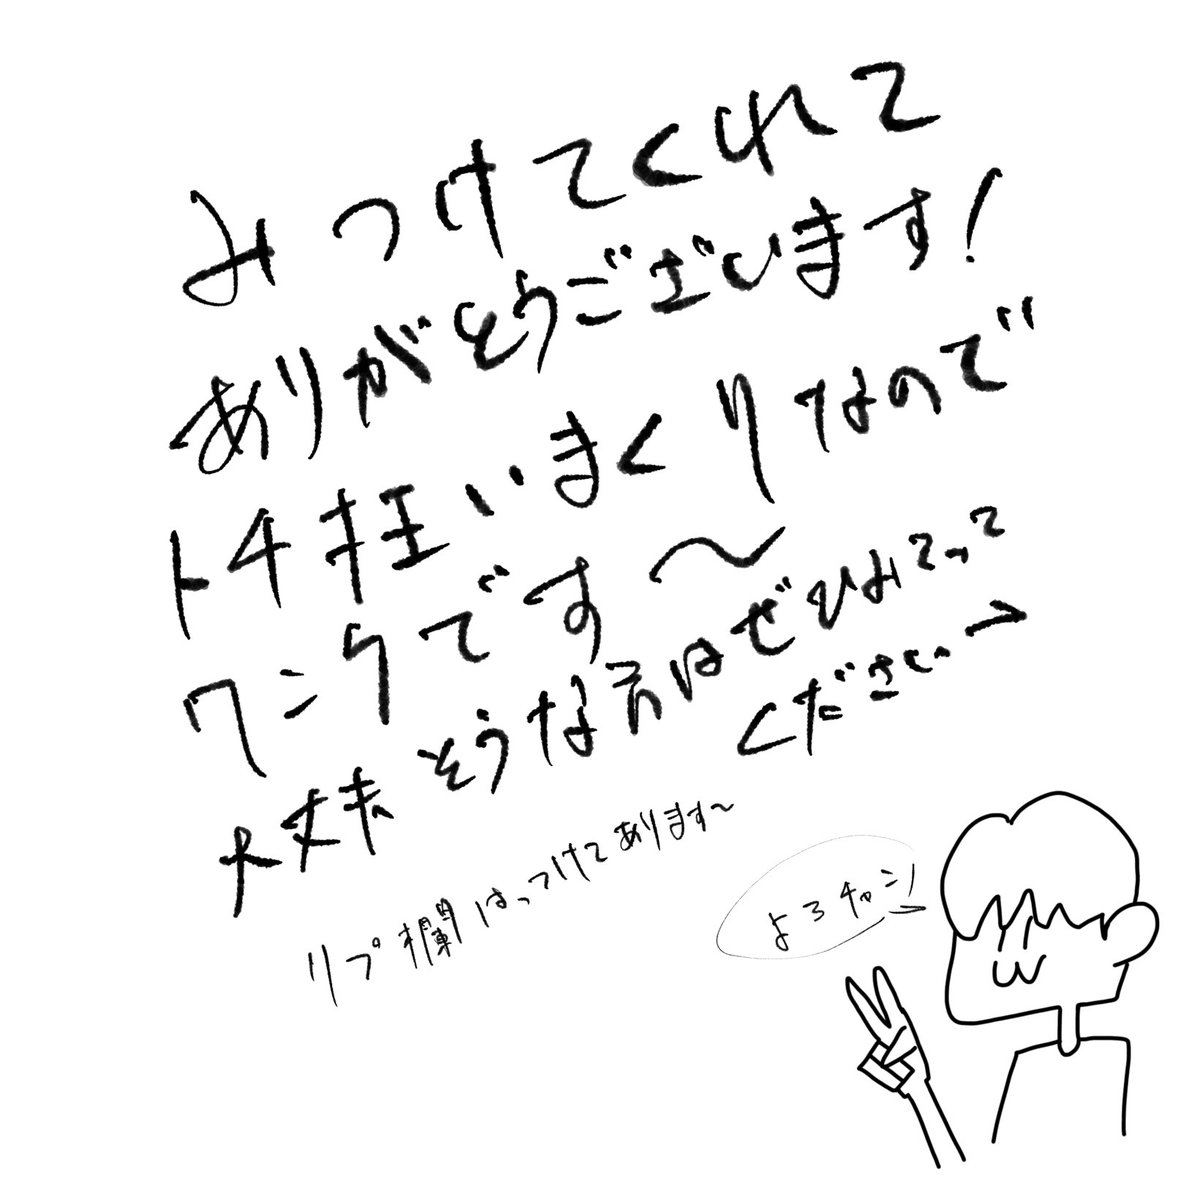 みつけてくれて
ありがとうございます!
トチ狂いまくりなので
ワンクです〜
大丈夫そうな方はぜひみてって
ください→
リプ欄はっつけてあります〜
よろチャン